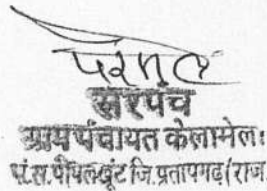 सरपंच
ग्रामपंचायत केलामेला
पं.स.पीपलखूंट जि.प्रतापगढ़(राज